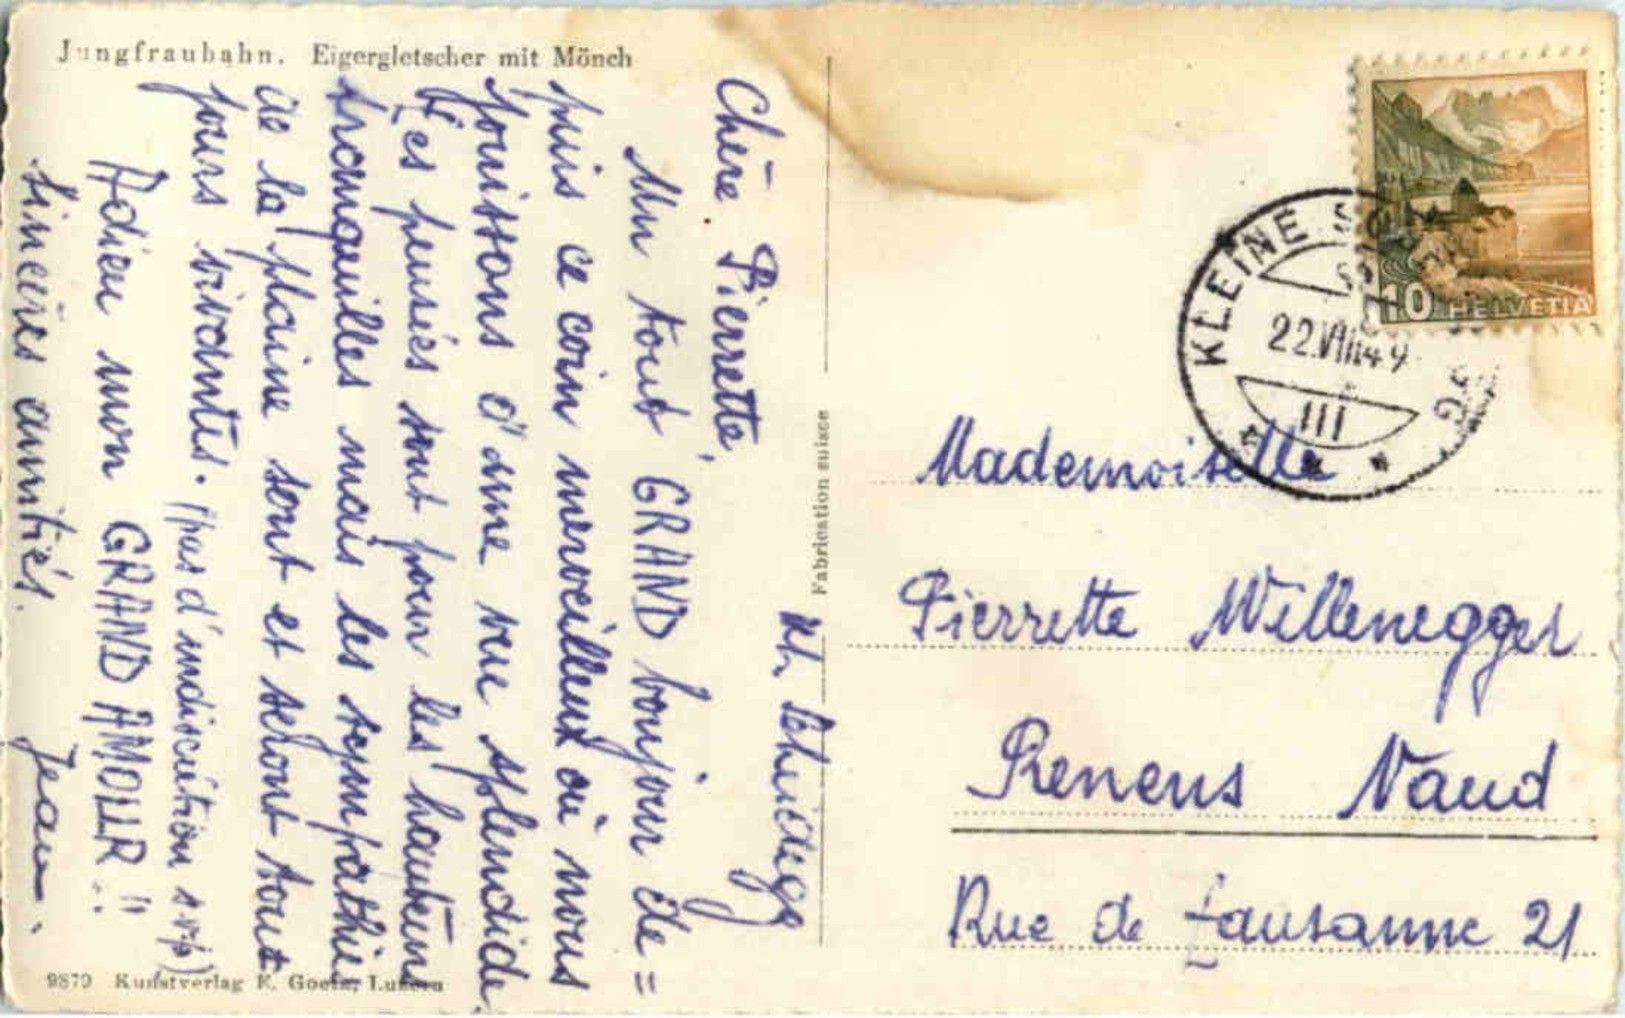 Jungfraubahn. Eigergletscher mit Mönch
Chère Pierrette,
Un tout GRAND bonjour de=
puis ce coin merveilleux où nous
jouissons d'une vue splendide.
Les pensées sont pour les hauteurs
tranquilles mais les sympathies
de la plaine sont et seront tous
jours vivantes. (pas d'indiscrétion s.v.p)
Adieu mon GRAND AMOUR!!
Sincères amitiés. Jean.
9879 Kunstverlag E. Goetz, Luzern
Fabrication suisse
KLEINE
22.VIII.49
III
10 HELVETIA
Mademoiselle
Pierrette Willenegger
Renens Vaud
Rue de Lausanne 21